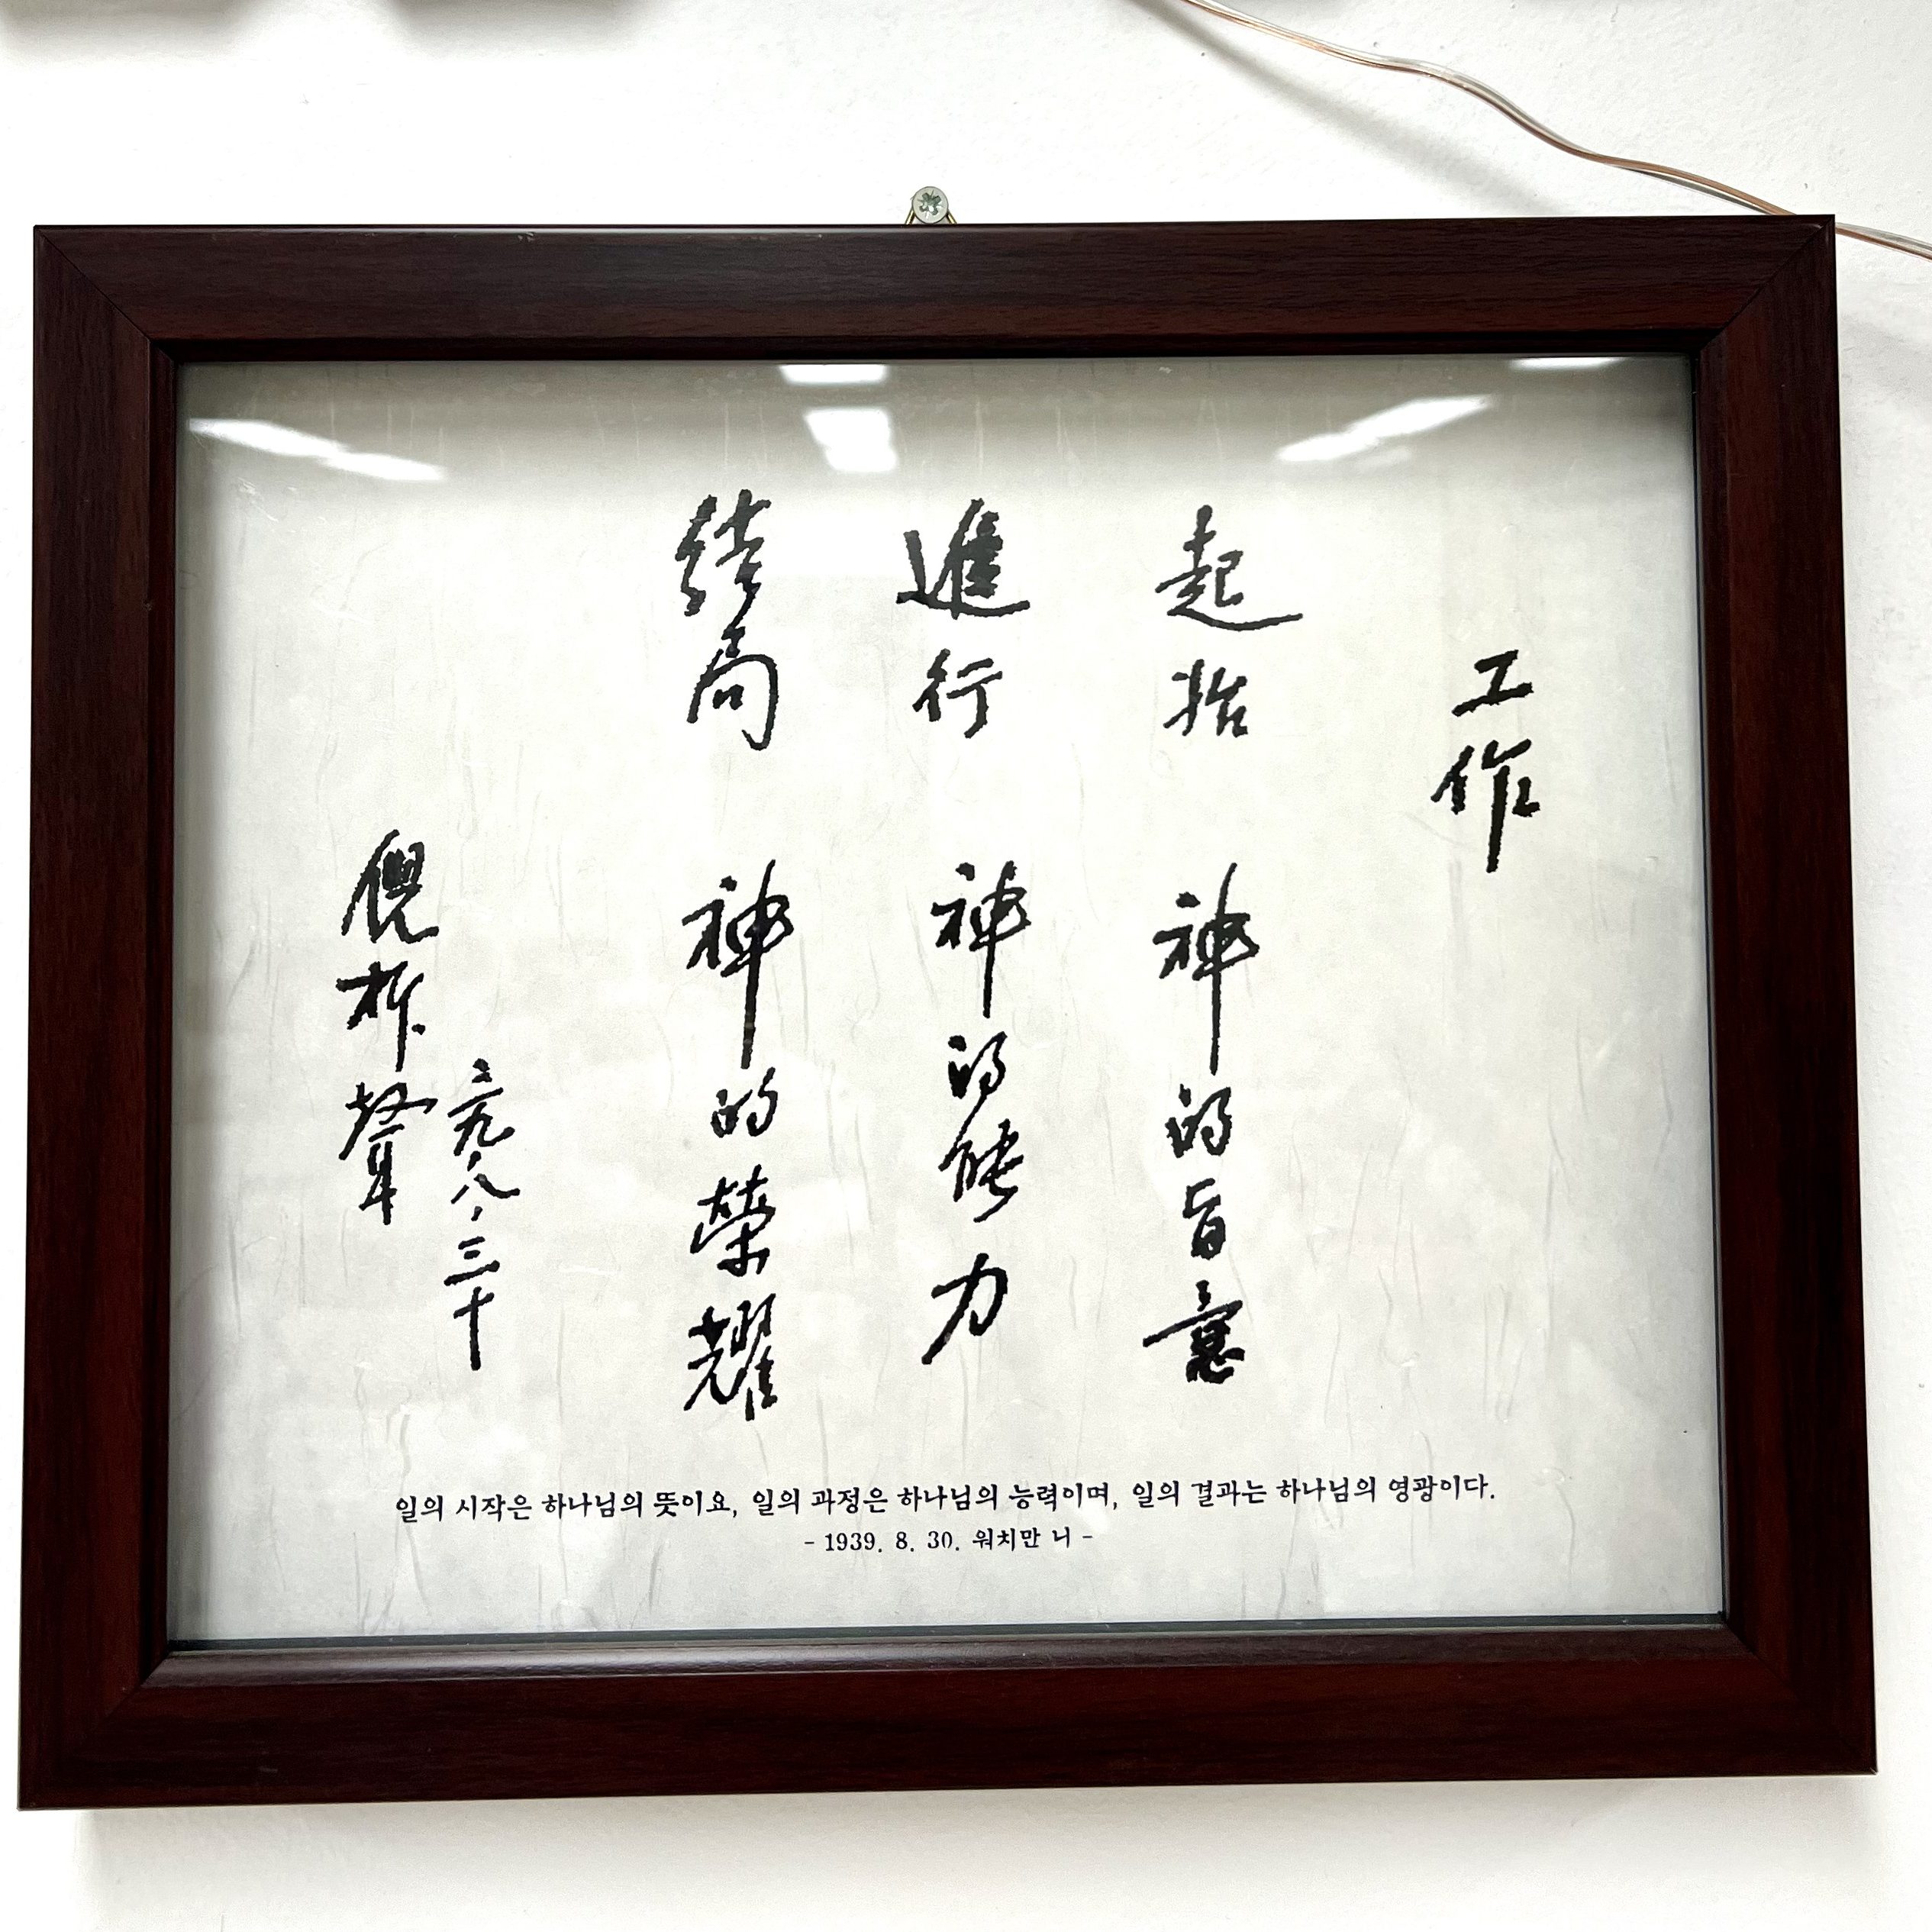 工作
起始 神的旨意
進行 神的能力
结局 神的榮耀
倪柝聲
二八、八、三十
일의 시작은 하나님의 뜻이요, 일의 과정은 하나님의 능력이며, 일의 결과는 하나님의 영광이다.
- 1939. 8. 30. 워치만 니 -